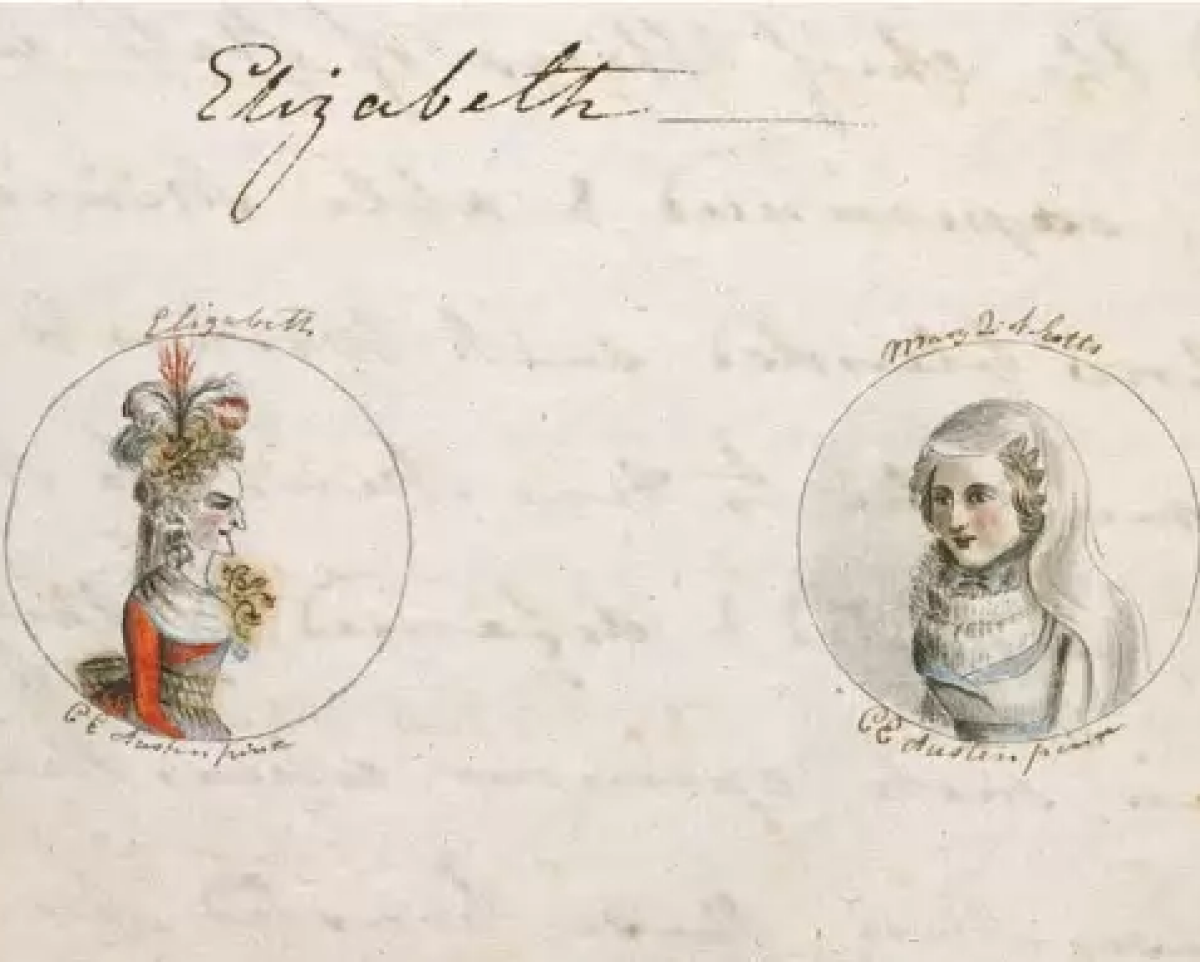 Elizabeth
Elizabeth
Mary Q. of Scots
C E Austen pinx
C E Austen pinx